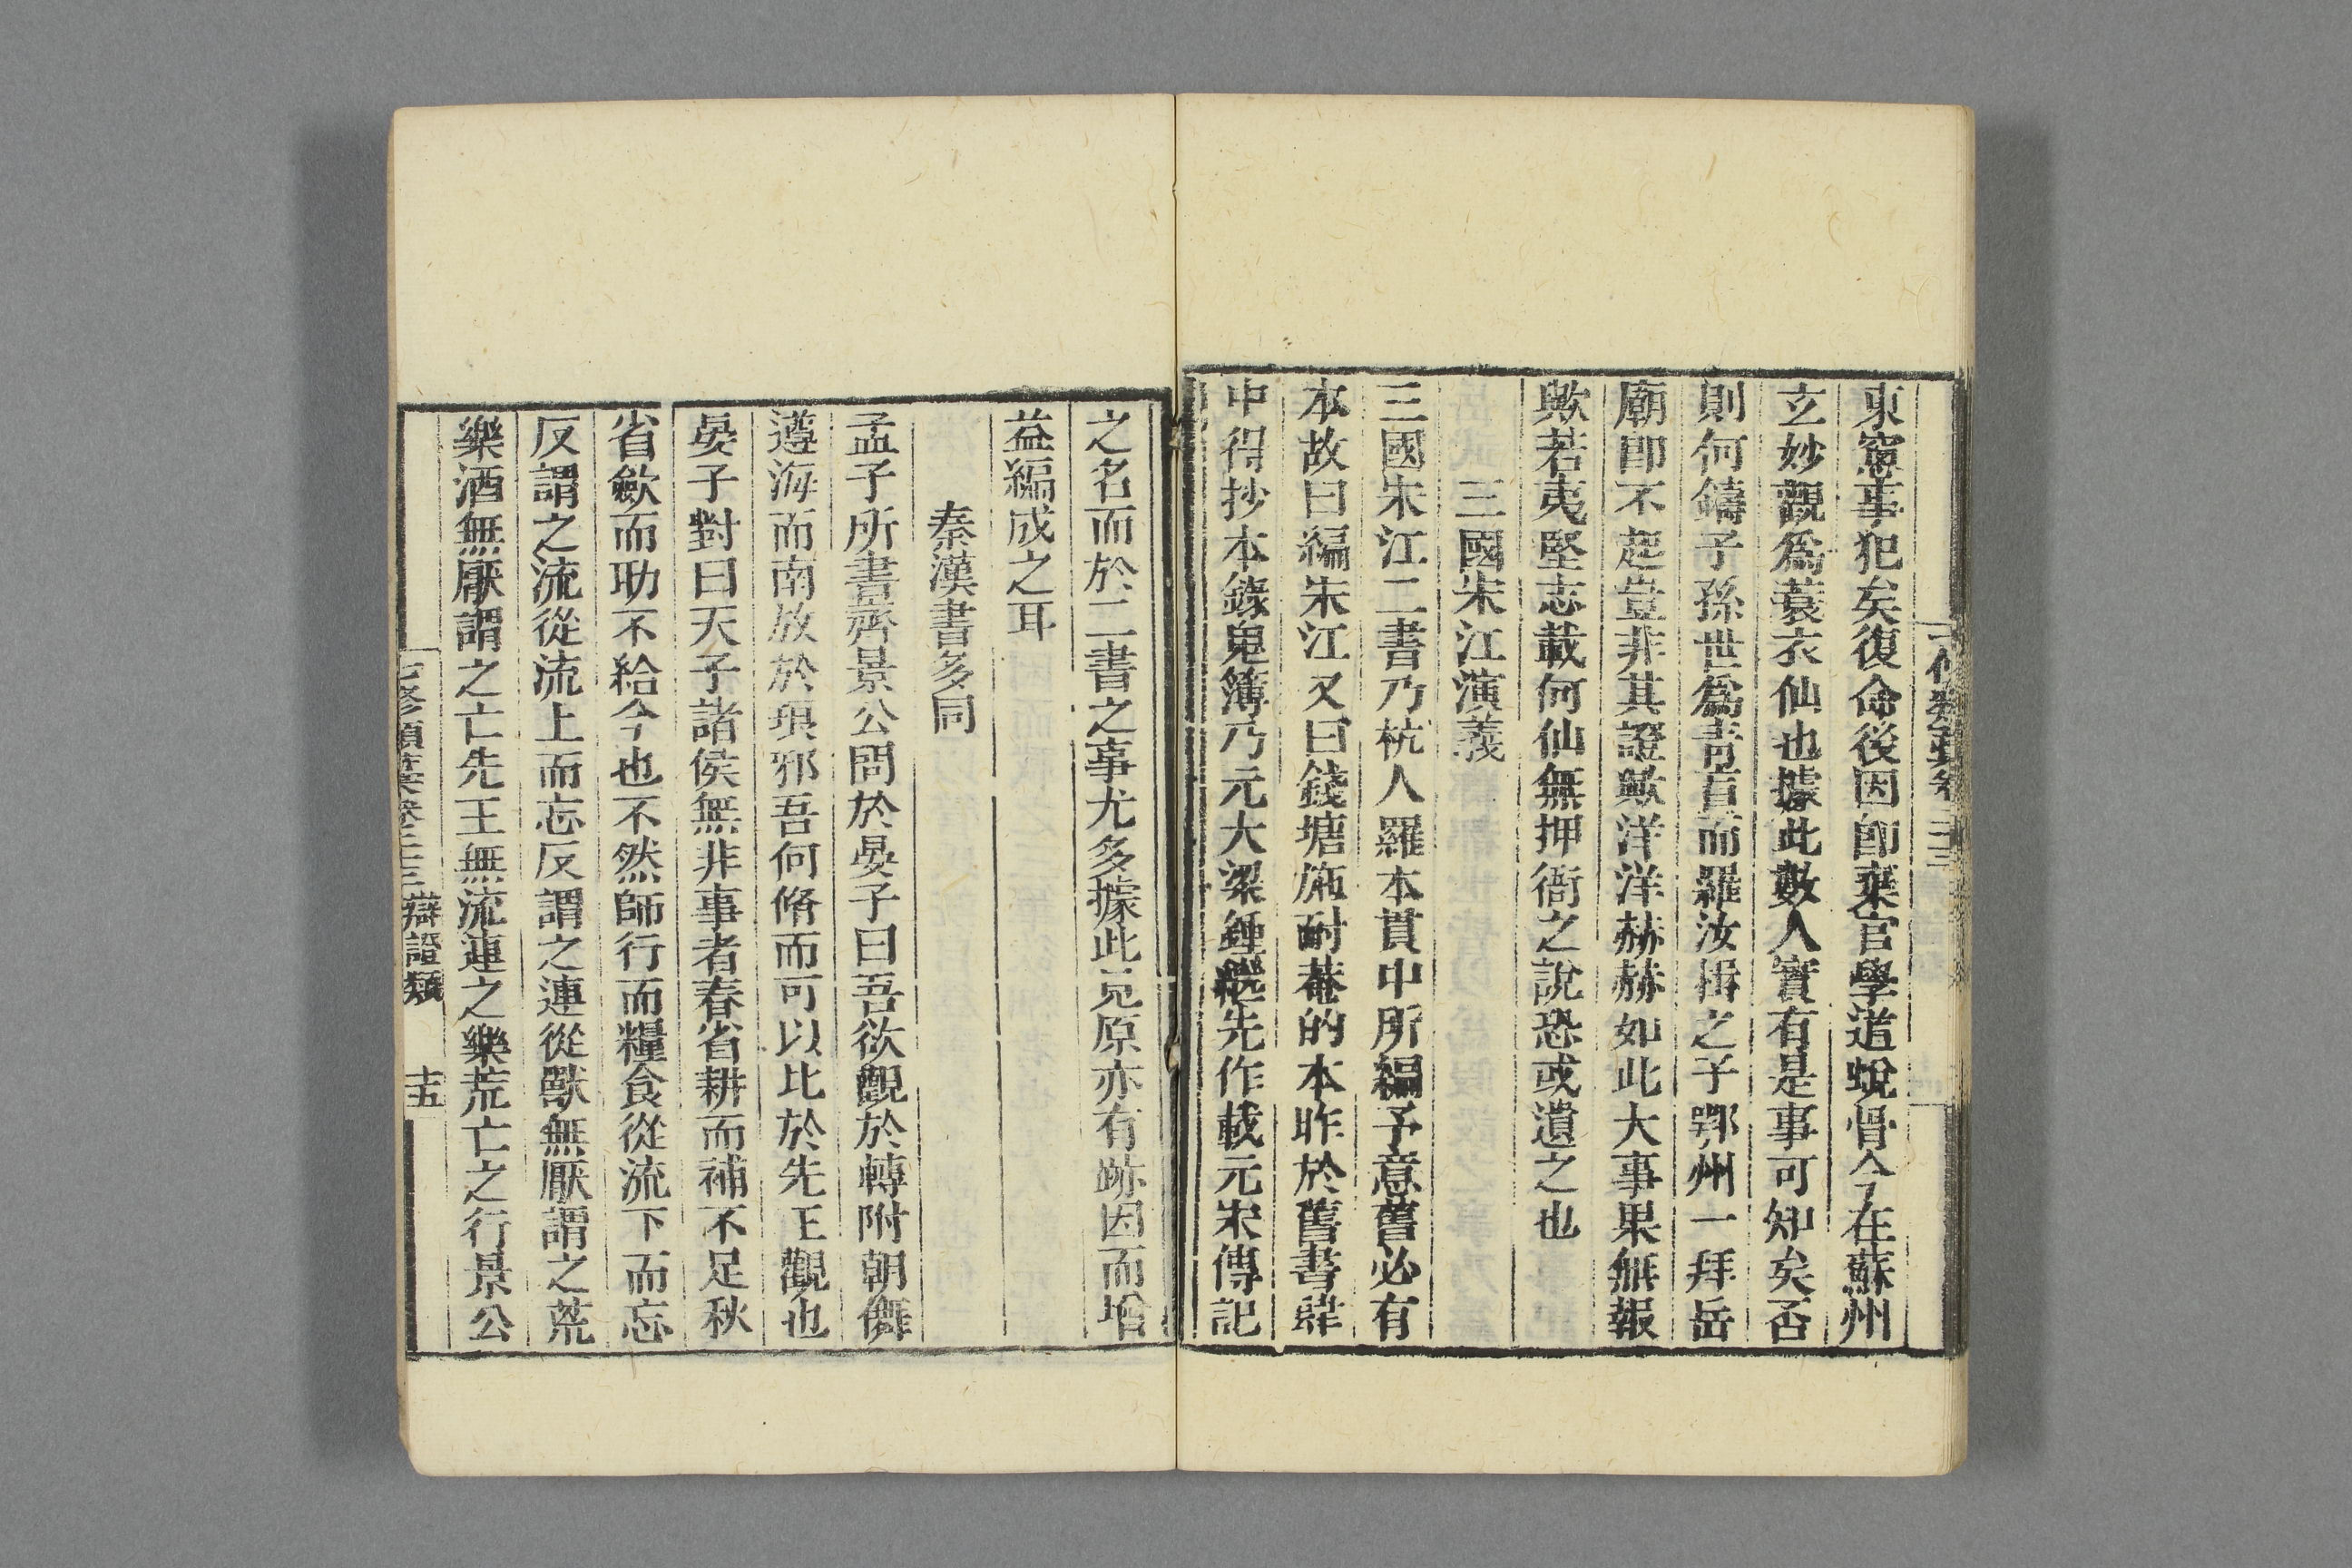 東窻事犯矣復命後因即棄官學道蛻骨今在蘇州
玄妙觀爲蓑衣仙也據此數人實有是事可知矣否
則何鑄子孫世爲靑盲而羅汝楫之子鄂州一拜岳
廟卽不起豈非其證歟洋洋赫赫如此大事果無報
歟若夷堅志載何仙無押衙之說恐或遺之也
三國宋江演義
三國宋江二書乃杭人羅本貫中所編予意舊必有
本故曰編宋江又曰錢塘施耐菴的本昨於舊書肆
中得抄本錄鬼簿乃元大梁鍾繼先作載元宋傳記
之名而於二書之事尤多據此見原亦有跡因而增
益編成之耳
秦漢書多同
孟子所書齊景公問於晏子曰吾欲觀於轉附朝儛
遵海而南放於琅邪吾何脩而可以比於先王觀也
晏子對曰天子諸侯無非事者春省耕而補不足秋
省歛而助不給今也不然師行而糧食從流下而忘
反謂之流從流上而忘反謂之連從獸無厭謂之荒
樂酒無厭謂之亡先王無流連之樂荒亡之行景公
七修類藁卷二十三 辯證類 十五